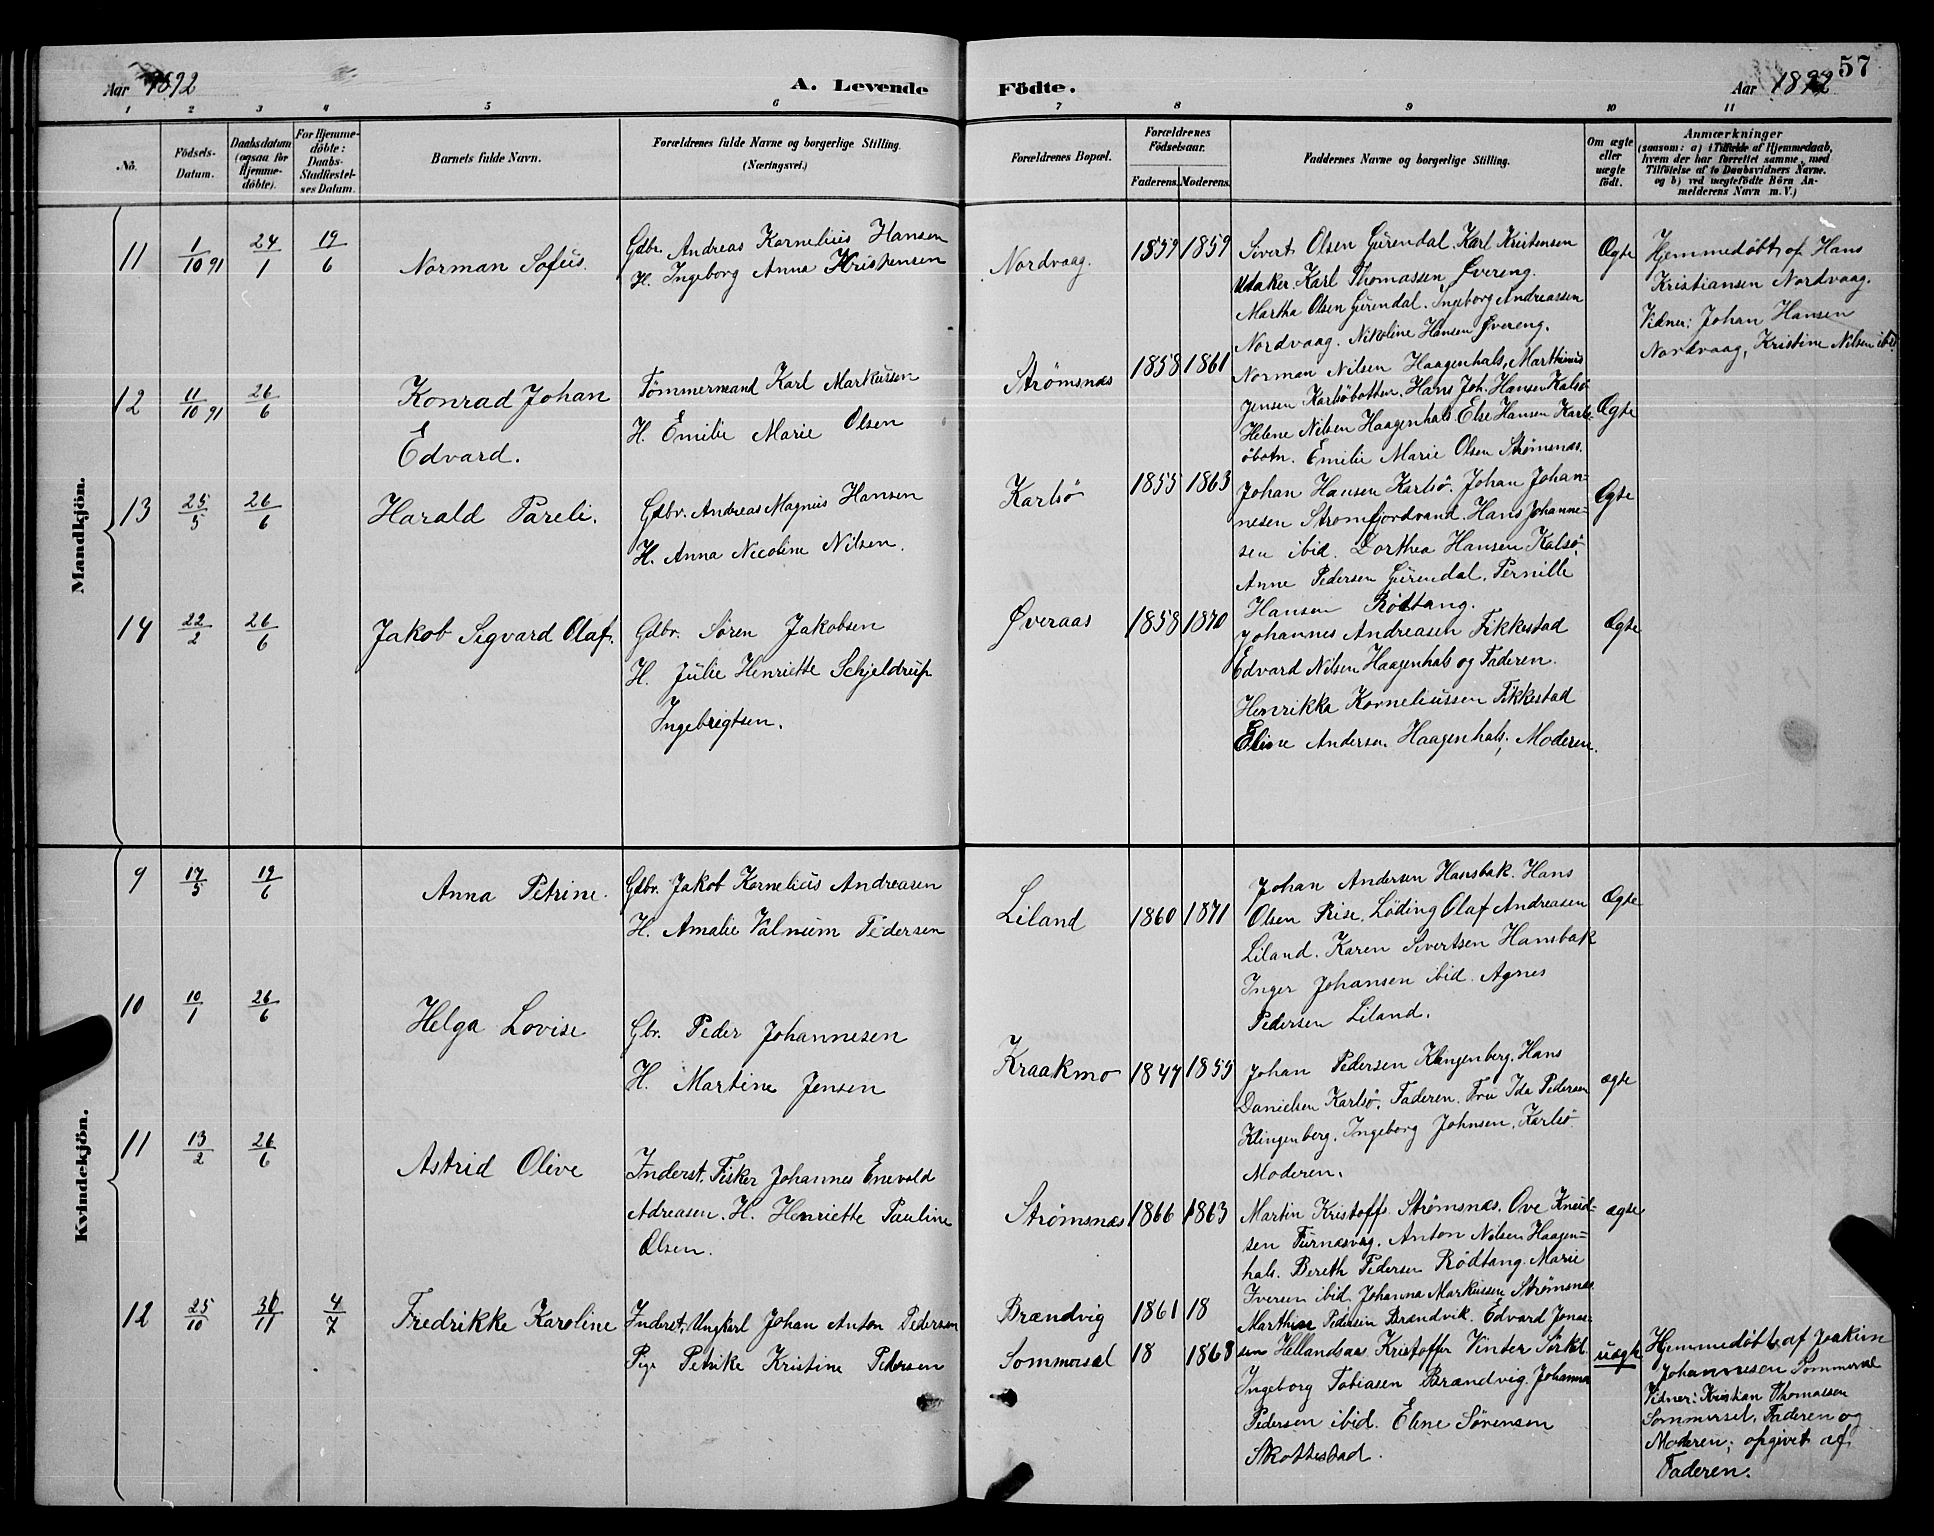 57
Aar 1892
A. Levende
Födte.
Aar 1892
1 2 3 4 5 6 7 8 9 10 11
No.
Födsels-Datum.
Daabsdatum (ogsaa for Hjemme-döbte).
For Hjemme-döbte: Daabs-Stadfæstel-ses Datum.
Barnets fulde Navn.
Forældrenes fulde Navne og borgerlige Stilling.
(Næringsvei.)
Forældrenes Bopæl.
Forældrenes Födselsaar.
Faderens. Moderens.
Faddernes Navne og borgerlige Stilling.
Om ægte eller uægte födt.
Anmærkninger
(saasom: a) i Tilfælde af Hjemmedaab, hvem der har forrettet samme, med Tilföielse af to Daabsvidners Navne. og b) ved uægtefödte Börn An-melderens Navn m. V.)
Mandkjön.
11 1/10 91 24/1 19/6 Norman Sofus.
Gdbr. Andreas Kornelius Hansen
H. Ingeborg Anna Kristensen
Nordvaag. 1859 1859
Sivert Olsen Gurendal. Karl Kristensen
Udaker. Karl Thomassen Øvereng.
Martha Olsen Gurendal. Ingeborg Andreassen
Nordvaag. Nikoline Hansen Øvereng.
Ægte
Hjemmedøbt af Hans
Kristiansen Nordvaag.
Vidner: Johan Hansen
Nordvaag, Kristine Nilsen ibd.
12 11/10 91 26/6 Konrad Johan
Edvard.
Tømmermand Karl Markussen
H. Emilie Marie Olsen
Strømsnæs 1858 1861
Norman Nilsen Haagenhals, Marthinus
Jensen Karlsöbotten. Hans Joh. Hansen Kalsö
Helene Nilsen Haagenhals. Else Hansen Karls-
öbotn. Emilie Marie Olsen Strømsnæs.
Ægte
13 25/5 26/6 Harald Pareli.
Gdbr. Andreas Magnus Hansen
H. Anna Nicoline Nilsen.
Karlsö 1855 1863
Johan Hansen Karlsö. Johan Johan-
nesen Strømfjordvand. Hans Johanne-
sen ibid. Dorthea Hansen Kalsö
Anne Pedersen Gurendal, Pernille
Hansen Rödtang.
Ægte
14 22/2 26/6 Jakob Sigvard Olaf.
Gdbr. Søren Jakobsen
H. Julie Henriette Schjeldrup
Ingebrigtsen.
Øveraas 1858 1870
Johannes Andreasen Fikkestad
Edvard Nilsen Haagenhals og Faderen.
Henrikka Korneliussen Fikkestad
Eline Andersen Haagenhals, Moderen.
Ægte
Kvindekjön.
9 17/5 19/6 Anna Petrine.
Gdbr. Jakob Kornelius Andreasen
H. Amalie Valnum Pedersen
Liland 1860 1871
Johan Andersen Hansbak. Hans
Olsen Rise, Løding Olaf Andreasen
Liland. Karen Sivertsen Hansbak
Inger Johansen ibid. Agnes
Pedersen Liland.
Ægte
10 10/1 26/6 Helga Lovise
Gbr. Peder Johannesen
H. Martine Jensen
Kraakmo 1847 1855
Johan Pedersen Klingenberg. Hans
Danielsen Karlsö. Faderen. Fru Ida Pedersen
Klingenberg. Ingeborg Johnsen, Karlsö
Moderen.
ægte
11 13/2 26/6 Astrid Olive
Inderst. Fisker Johannes Enevold
Adreasen. H. Henriette Pauline
Olsen.
Strømsnæs 1866 1863
Martin Kristoffs. Strømsnæs. Ove Knud-
sen Furnæsvag. Anton Nilsen Haagen-
hals. Bereth Pedersen Rödtang. Marie
Iversen ibid. Johanna Markussen Strømsnæs.
ægte
12 25/10 30/11 4/7 Fredrikke Karoline
Inderst, Ungkarl Johan Anton Pedersen
Pige Petrike Kristine Pedersen
Brændvig 1861 18
Sommersel 18 1868
Marthine Pedersen Brændvik. Edvard Jonas-
sen Hellandsaas. Kristoffer Vinter Sörkil
Ingeborg Tobiasen Brændvig. Johanna
Pedersen ibid. Eline Sörensen
Skottestad.
uægte
Hemmedøbt af Joakim
Johannesen Sommersel
Vidner: Kristian Thomassen
Sommersel, Faderen og
Moderen; opgivet af
Faderen.